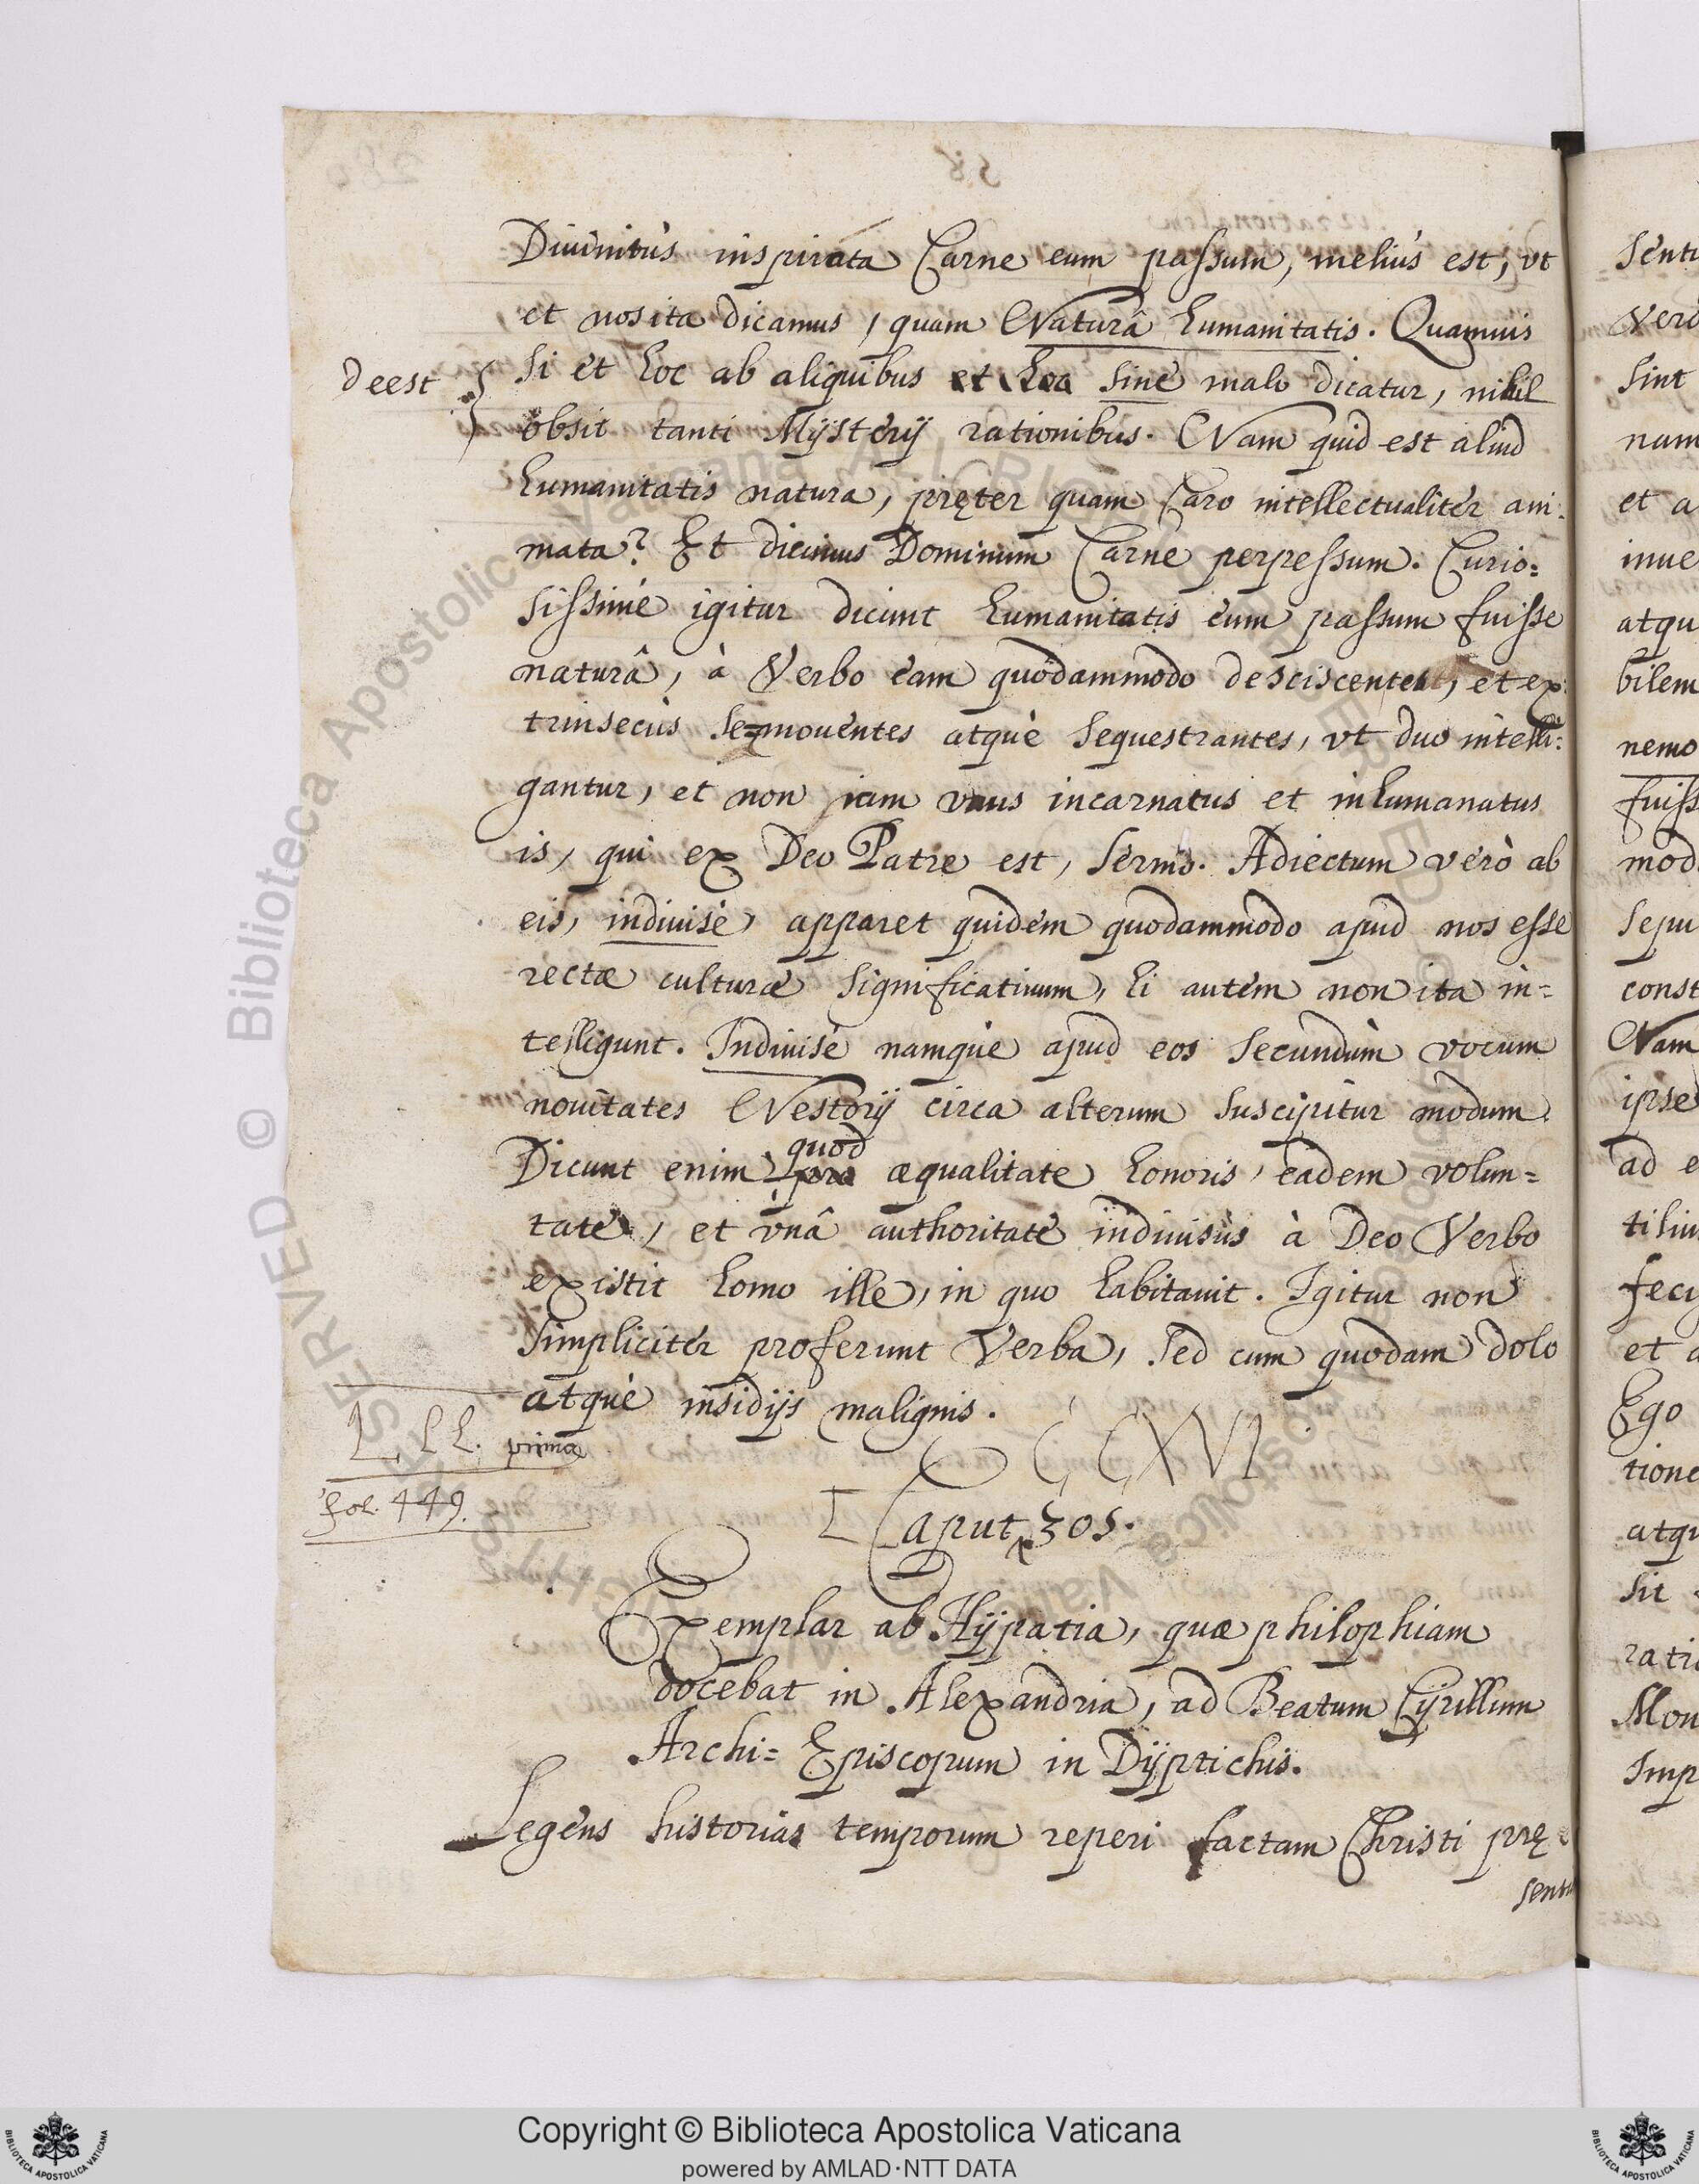 Diuinitùs inspirata Carne eum passum, meliùs est, vt
et nos ita dicamus, quam Naturâ humanitatis. Quamuis
deest
si et hoc ab aliquibus et hoc sine malo dicatur, nihil
obsit tanti Mysterij rationibus. Nam quid est aliud
humanitatis natura, pręter quam Caro intellectualitèr ani-
mata? Et dicimus Dominum Carne perpessum. Curio=
sissimè igitur dicunt humanitatis eum passum fuisse
naturâ, à Verbo eam quodammodo desciscentes, et ex
trinsecùs semouentes atquè sequestrantes, vt duo intelli:
gantur, et non iam vnus incarnatus et inhumanatus
is, qui ex Deo Patre est, sermo. Adiectum verò ab
eis, indiuisè, apparet quidem quodammodo apud nos esse
rectæ culturæ significatiuum, hi autem non ita in=
telligunt. Indiuisè namquè apud eos secundùm vocum
nouitates Nestorij circa alterum suscipitur modum.
quod
Dicunt enim, pro æqualitate honoris, eadem volun=
tate, et vnâ authoritate indiuisùs à Deo Verbo
existit homo ille, in quo habitauit. Igitur non
simplicitèr proferunt Verba, sed cum quodam dolo
atquè insidijs malignis.
prima
fol. 449.
CCXVI
Caput 305.
Exemplar ab Hypatia, quæ philophiam
docebat in Alexandria, ad Beatum Cyrillum
Archi= Episcopum in Dyptichis.
Legens historias temporum reperi factam Christi prę
Copyright © Biblioteca Apostolica Vaticana
powered by AMLAD·NTT DATA